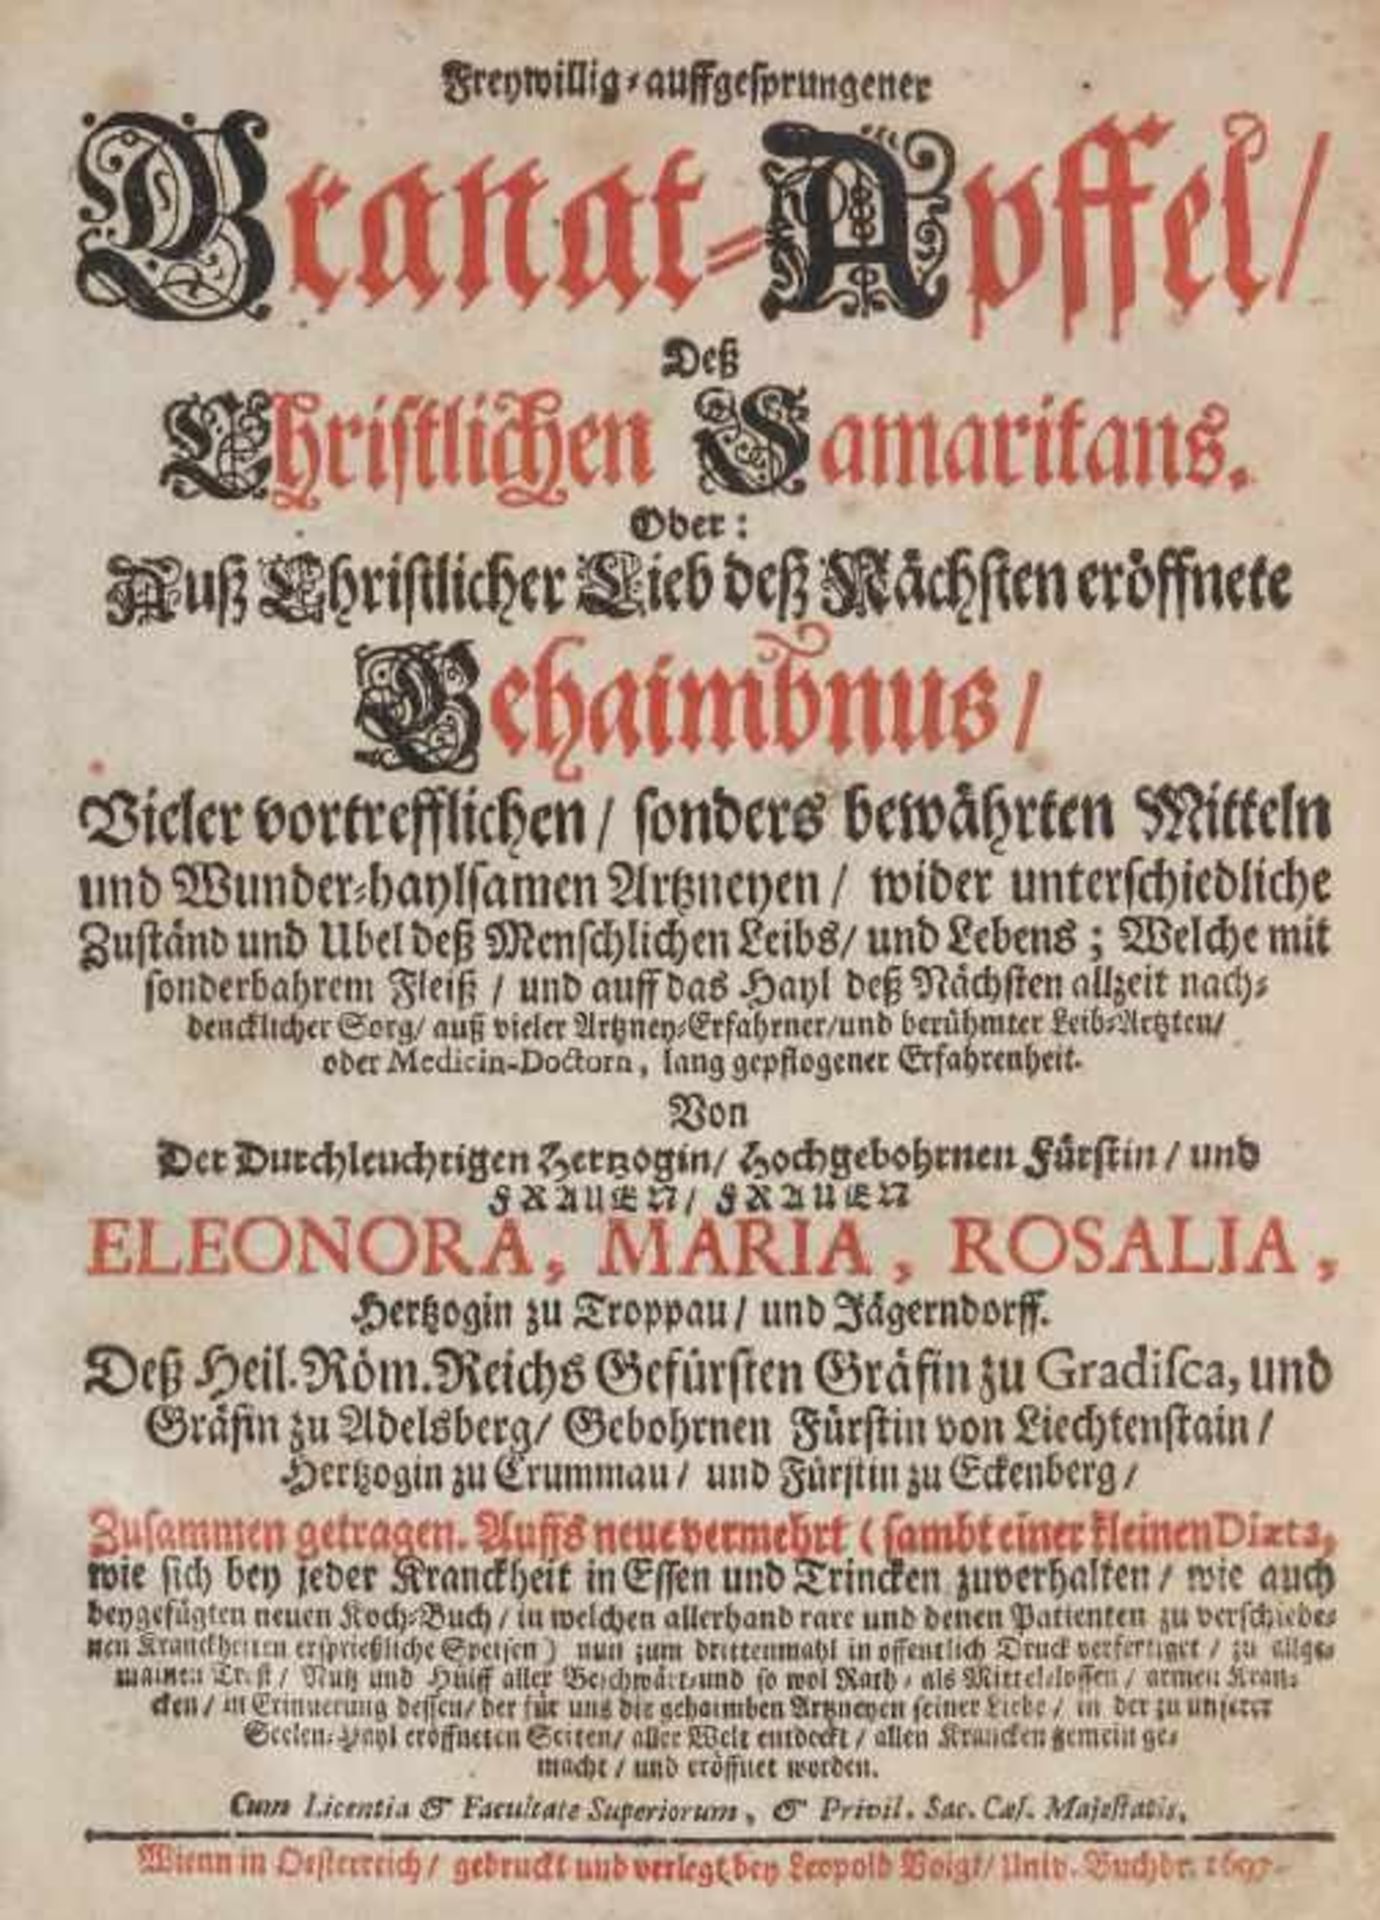 Freywillig-auffgesprungener
Granat-Apffel/
Deß
Christlichen Samaritans.
Oder:
Auß Christlicher Lieb deß Nächsten eröffnete
Gehaimbnus/
Vieler vortrefflichen/ sonders bewährten Mitteln
und Wunder-haylsamen Artzneyen/ wider unterschiedliche
Zuständ und Ubel deß Menschlichen Leibs/ und Lebens; Welche mit
sonderbahrem Fleiß/ und auff das Hayl deß Nächsten allzeit nach-
dencklicher Sorg/ auß vieler Artzney-Erfahrner/und berühmter Leib-Artzten/
oder Medicin-Doctorn, lang gepflogener Erfahrenheit.
Von
Der Durchleuchtigen Hertzogin/ Hochgebohrnen Fürstin/ und
FRAUEN/ FRAUEN
ELEONORA, MARIA, ROSALIA,
Hertzogin zu Troppau/ und Jägerndorff.
Deß Heil. Röm. Reichs Gefürsten Gräfin zu Gradisca, und
Gräfin zu Adelsberg/ Gebohrnen Fürstin von Liechtenstain/
Hertzogin zu Crummau/ und Fürstin zu Eckenberg/
Zusammen getragen. Auffs neue vermehrt (sambt einer kleinen Diæta,
wie sich bey jeder Kranckheit in Essen und Trincken zuverhalten/ wie auch
beygefügten neuen Koch-Buch/ in welchen allerhand rare und denen Patienten zu verschiede-
nen Kranckheiten ersprießliche Speisen) nun zum drittenmahl in offentlich Druck verfertiget/ zu allge-
mainen Trost/ Nutz und Hülff aller Beschwärt-und so wol Rath- als Mittel-lossen/ armen Kran-
cken/ in Erinnerung dessen/ der für uns die gehaimben Artzneyen seiner Liebe/ in der zu unserer
Seelen-Hayl eröffneten Seiten/ aller Welt entdeckt/ allen Krancken gemein ge-
macht/ und eröffnet worden.
Cum Licentia & Facultate Superiorum, & Privil. Sac. Cæs. Majestatis.
Wienn in Oesterreich/ gedruckt und verlegt bey Leopold Voigt/ Univ. Buchdr. 1697.